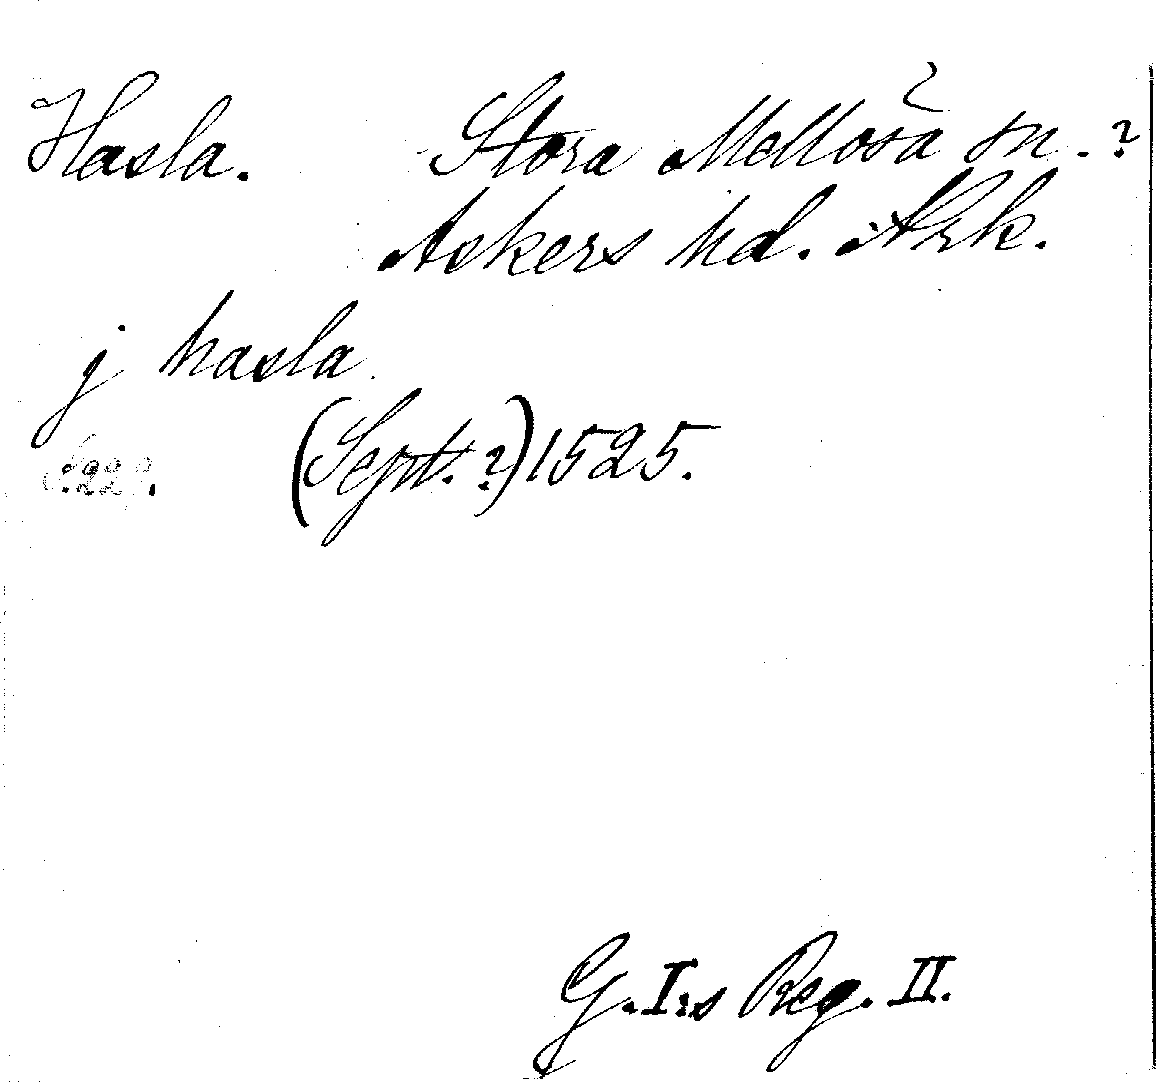 Hasla. Stora Mellösa sn.?
Askers hd. Nrk.
j hasla
(Sept.?) 1525.
G. I:s Reg. II.